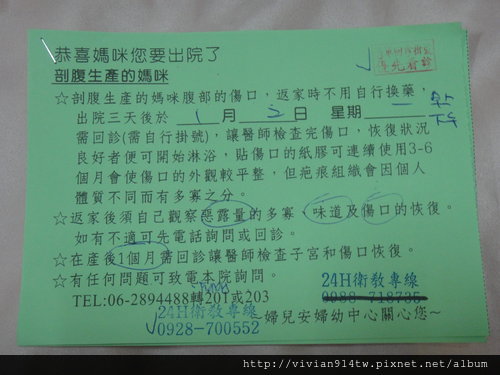 恭喜媽咪您要出院了
剖腹生產的媽咪
☆剖腹生產的媽咪腹部的傷口，返家時不用自行換藥，
出院三天後於 1 月 2 日 星期 一
需回診(需自行掛號)，讓醫師檢查完傷口，恢復狀況
良好者便可開始淋浴，貼傷口的紙膠可連續使用3-6
個月會使傷口的外觀較平整，但疤痕組織會因個人
體質不同而有多寡之分。
☆返家後須自己觀察惡露量的多寡 味道及傷口的恢復。
如有不適可先電話詢問或回診。
☆在產後1個月需回診讓醫師檢查子宮和傷口恢復。
☆有任何問題可致電本院詢問。
24H衛教專線
TEL:06-2894488轉201或203
0988-718735
24H衛教專線
0928-700552
婦兒安婦幼中心關心您~
http://vivian914tw.pixnet.net/album